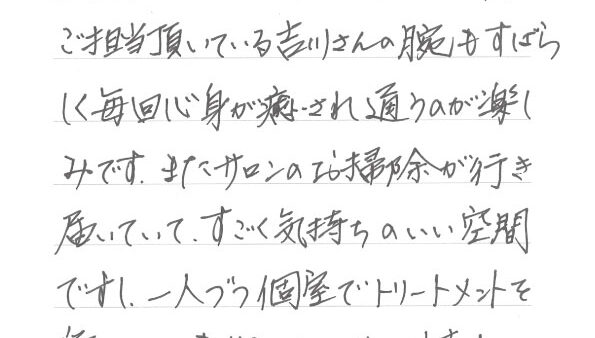 ご担当頂いている吉川さんの腕もすばら
しく毎回心身が癒され通うのが楽し
みです。またサロンのお掃除が行き
届いていて、すごく気持ちのいい空間
ですし、一人づつ個室でトリートメントを